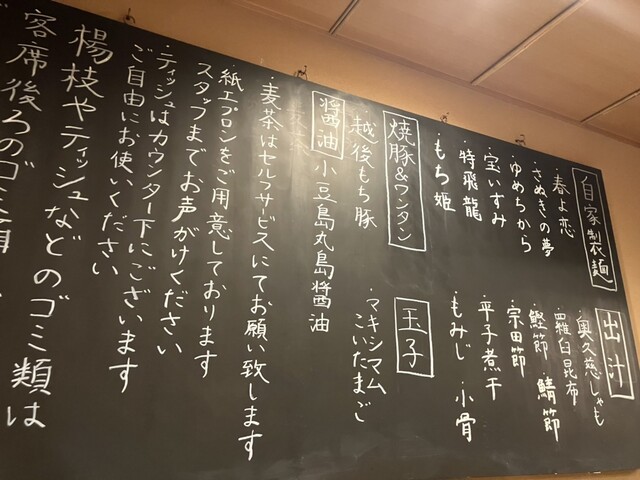 自家製麺
・春よ恋
・さぬきの夢
・ゆめちから
・宝いずみ
・特飛龍
・もち姫
出汁
・奥久慈しゃも
・羅臼昆布
・鰹節 ・鯖節
・宗田節
・平子煮干
・もみじ ・小骨
焼豚&ワンタン
・越後もち豚
玉子
・マキシマム
こいたまご
醤油 小豆島丸島醤油
・麦茶はセルフサービスにてお願い致します
・紙エプロンをご用意しております
スタッフまでお声がけください
・ティッシュはカウンター下にございます
ご自由にお使いください
楊枝やティッシュなどのゴミ類は
客席後ろのゴミ類